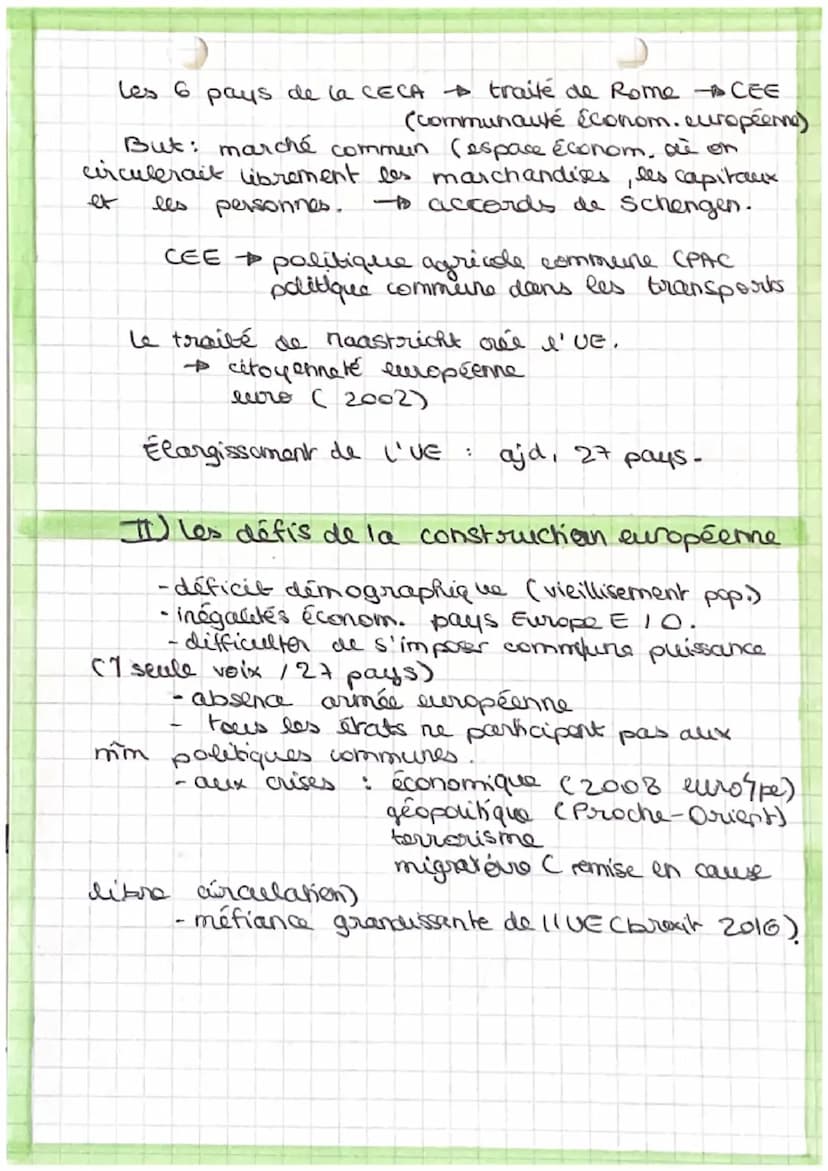 Les 6 pays de la CECA → traité de Rome → CEE
(communauté Économ. européenne)
But : marché commun (espace économ. où on
circulerait librement les marchandises, les capitaux
et les personnes. → accords de Schengen.
CEE → politique agricole commune (PAC
politique commune dans les transports
Le traité de Maastricht crée l'UE.
→ citoyenneté européenne
euro (2002)
Élargissement de l'UE : ajd, 27 pays.
II) Les défis de la construction européenne
- déficit démographique (vieillisement pop.)
- inégalités économ. pays Europe E / O.
- difficulter de s'imposer comme une puissance
(1 seule voix / 27 pays)
- absence armée européenne
- tous les états ne participent pas aux
mm politiques communes.
- aux crises : économique (2008 europe)
géopolitique (Proche-Orient)
terrorisme
migratoire (remise en cause
libre circulation)
- méfiance grandissante de l'UE (brexit 2016).